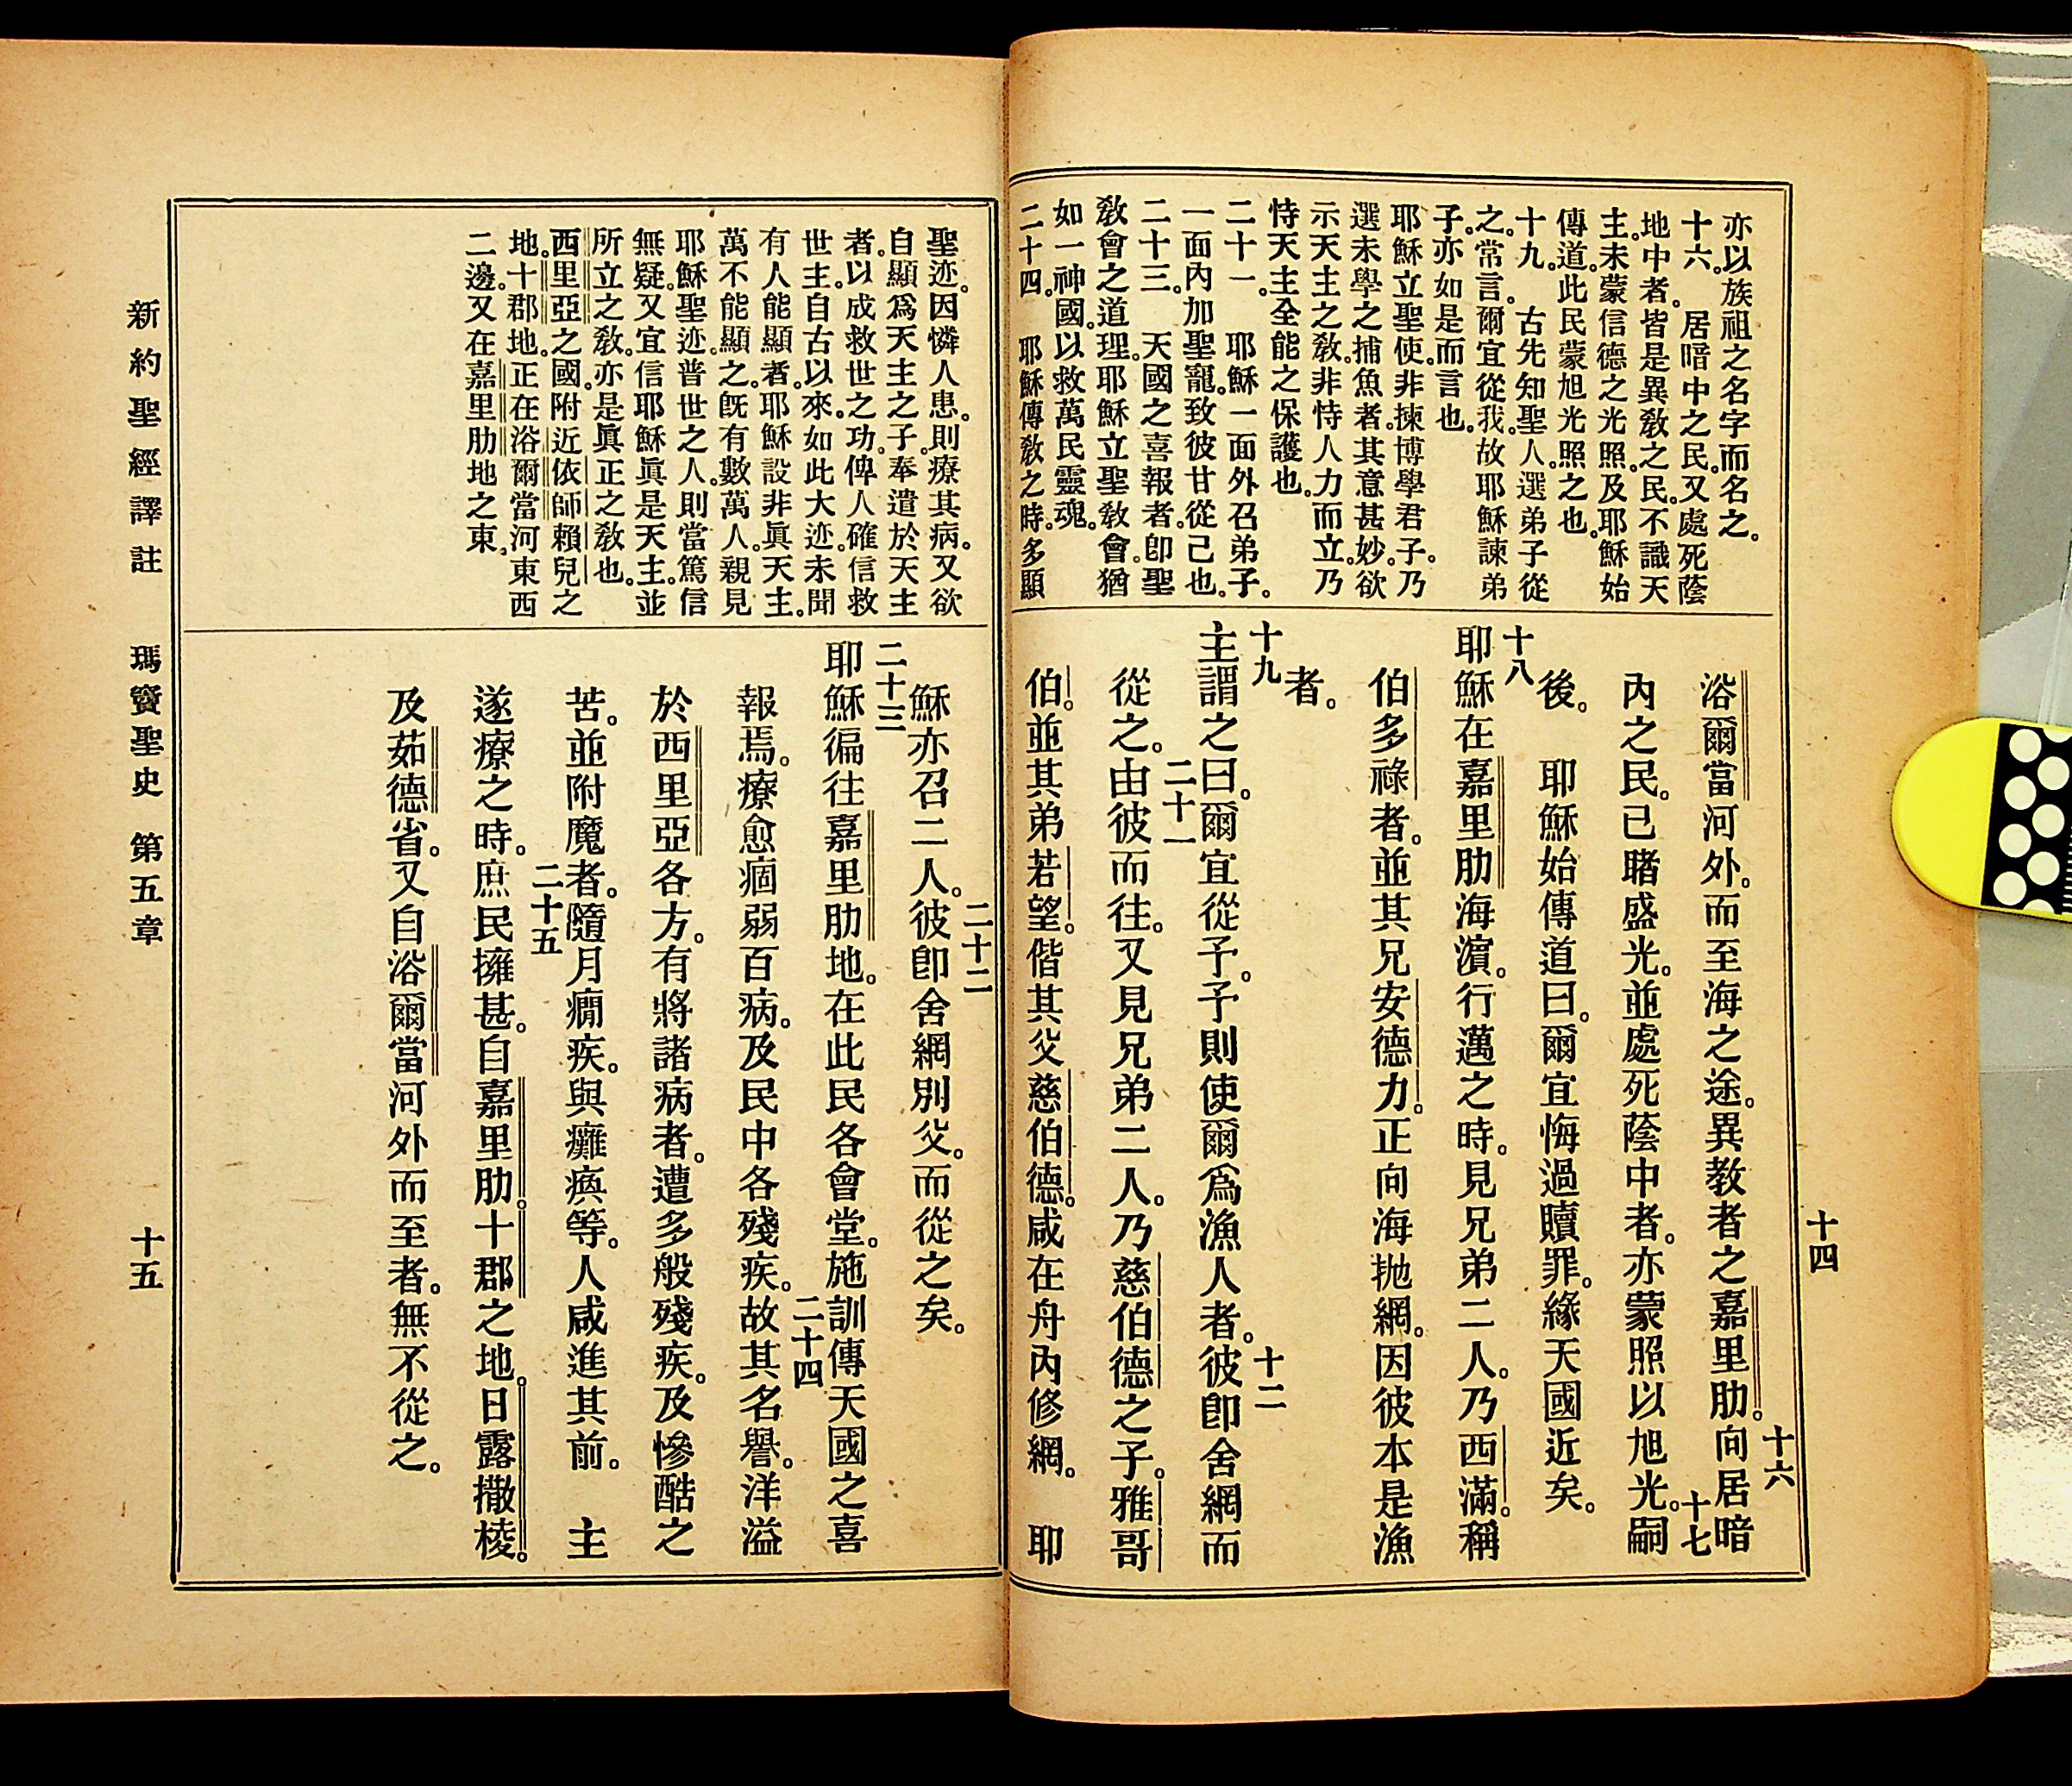 亦以族祖之名字而名之。
十六。 居暗中之民。又處死蔭
地中者。皆是異敎之民。不識天
主。未蒙信德之光照。及耶穌始
傳道。此民蒙旭光照之也。
十九。 古先知聖人。選弟子從
之。常言。爾宜從我。故耶穌諫弟
子。亦如是而言也。
耶穌立聖使。非揀博學君子。乃
選未學之捕魚者。其意甚妙。欲
示天主之敎。非恃人力而立。乃
恃天主全能之保護也。
二十一。 耶穌一面外召弟子。
一面內加聖寵。致彼甘從己也。
二十三。 天國之喜報者。卽聖
敎會之道理。耶穌立聖敎會。猶
如一神國。以救萬民靈魂。
二十四。 耶穌傳敎之時。多顯
浴爾當河外。而至海之途。異敎者之嘉里肋。十六向居暗
內之民。已睹盛光。並處死蔭中者。亦蒙照以旭光。十七嗣
後。 耶穌始傳道曰。爾宜悔過贖罪。緣天國近矣。
十八耶穌在嘉里肋海濵。行邁之時。見兄弟二人。乃西滿。稱
伯多祿者。並其兄安德力。正向海抛網。因彼本是漁
者。
十九主謂之曰。爾宜從予。予則使爾爲漁人者。十二彼卽舍網而
從之。二十一由彼而往。又見兄弟二人。乃慈伯德之子。雅哥
伯。並其弟若望。偕其父慈伯德。咸在舟內修網。 耶
十四
聖迹。因憐人患。則療其病。又欲
自顯爲天主之子。奉遣於天主
者。以成救世之功。俾人確信救
世主。自古以來。如此大迹。未聞
有人能顯者。耶穌設非眞天主。
萬不能顯之。旣有數萬人。親見
耶穌聖迹。普世之人。則當篤信
無疑。又宜信耶穌眞是天主。並
所立之敎。亦是眞正之敎也。
西里亞之國。附近依師賴兒之
地。十郡地。正在浴爾當河東西
二邊。又在嘉里肋地之東。
穌亦召二人。二十二彼卽舍網別父。而從之矣。
二十三耶穌徧往嘉里肋地。在此民各會堂。施訓傳天國之喜
報焉。療愈痼弱百病。及民中各殘疾。二十四故其名譽。洋溢
於西里亞各方。有將諸病者。遭多般殘疾。及慘酷之
苦。並附魔者。隨月癇疾。與癱瘓等。人咸進其前。 主
遂療之時。二十五庶民擁甚。自嘉里肋。十郡之地。日露撒棱。
及茹德省。又自浴爾當河外而至者。無不從之。
新約聖經譯註 瑪竇聖史 第五章 十五